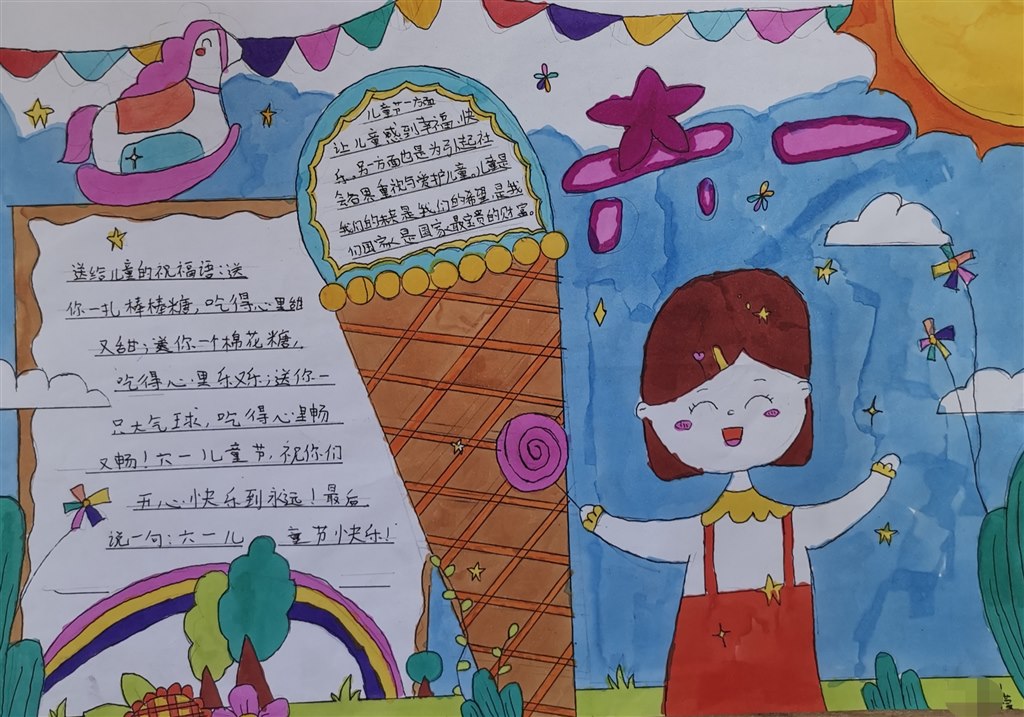 儿童节一方面
让儿童感到幸福、快
乐。另方面也是为引起社
会各界重视与爱护儿童。儿童是
我们的未来是我们的希望,是我
们国家是国家最宝贵的财富。
送给儿童的祝福语:送
你一扎棒棒糖,吃得心里甜
又甜;送你一个棉花糖,
吃得心里乐又乐;送你一
只大气球,吃得心里畅
又畅!六一儿童节,祝你们
开心快乐到永远!最后
说一句:六一儿童节快乐!